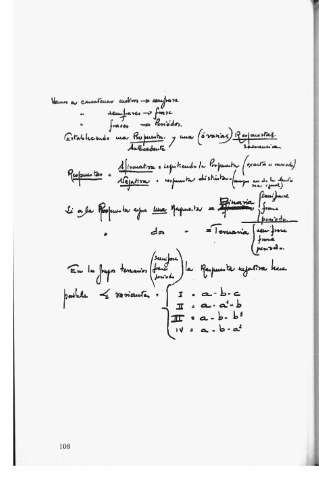 Vamos a construir motivos → semifrase
" semifrases → frase
" frases → Periodos.
Estableciendo una Propuesta y una (ó varias) Respuestas
Antecedente Consecuencia
Respuestas = Afirmativa = repitiendo la Propuesta (exacta o variada)
Negativa = respuesta distinta
Si a la Propuesta sigue una Respuesta = Binaria { semifrase
frase
periodo
" dos " = Ternaria { semifrase
frase
periodo.
En la forma ternaria ( semifrase
frase
periodo ) la Respuesta negativa tiene
4 variantes = { I = a - b - c
II = a - a' - b
III = a - b - b'
IV = a - b - a'
106